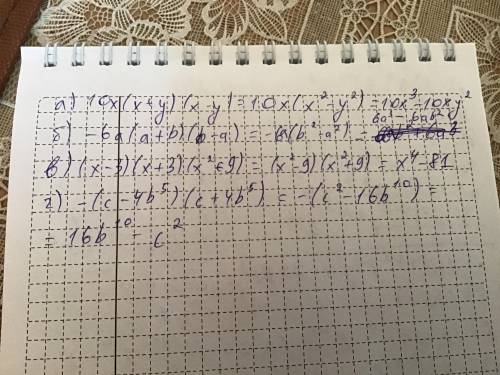 а) 10x(x+y)(x-y)=10x(x²-y²)=10x³-10xy²
б) -6a(a+b)(b-a)= -6a(b²-a²)= 6a³-6ab²
в) (x-3)(x+3)(x²+9)=(x²-9)(x²+9)=x⁴-81
г) -(c-4b⁵)(c+4b⁵)= -(c²-16b¹⁰)=
= 16b¹⁰-c²